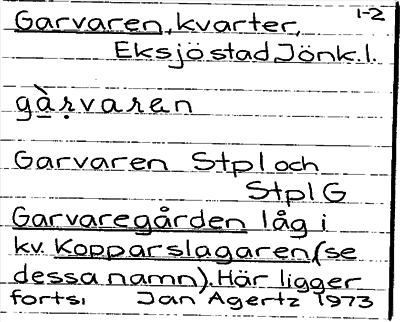 1-2
Garvaren, kvarter,
Eksjö stad Jönk. l.
gàṛvaṛen
Garvaren Stpl och
Stpl G
Garvaregården låg i
kv. Kopparslagaren (se
dessa namn). Här ligger
forts. Jan Agertz 1973